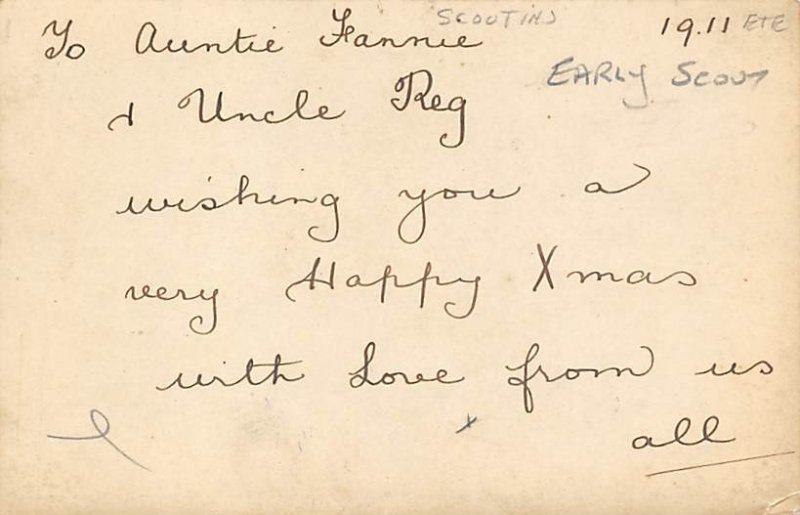 SCOUTING
19.11 ETE
To Auntie Fannie
EARLY SCOUT
& Uncle Reg
wishing you a
very Happy Xmas
with Love from us
x
all